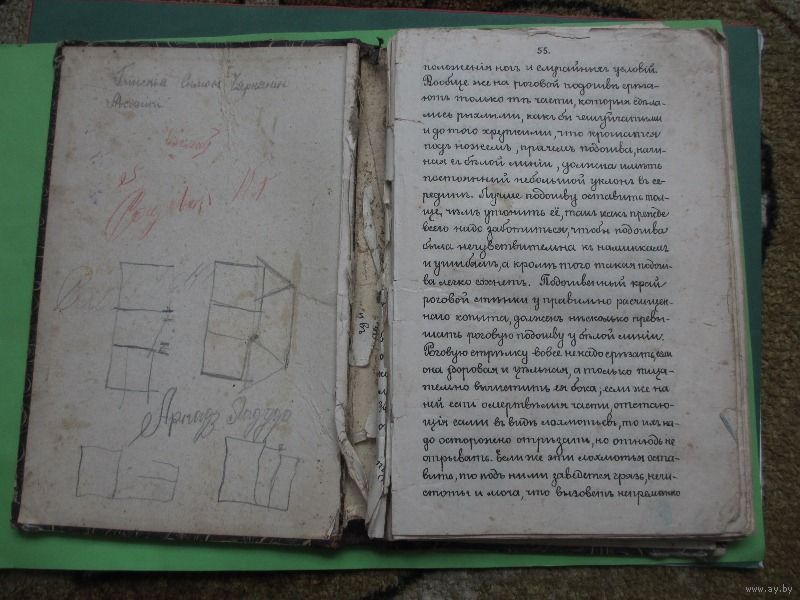 55.
положенія ногъ и случайныхъ условій.
Вообще же на роговой подошвѣ срѣза-
ютъ только тѣ части, которыя сдѣла-
лись рыхлыми, какъ бы чешуйчатыми
и до того хрупкими, что крошатся
подъ ножемъ, причемъ подошва, начи-
ная ея бѣлой линіи, должна имѣть
постоянный небольшой уклонъ къ се-
рединѣ. Лучше подошву оставить тол-
ще, чѣмъ утонить её, такъ какъ прежде
всего надо заботиться, чтобы подошва
была нечувствительна къ наминкамъ
и ушибамъ, а кромѣ того такая подош-
ва легко сохнетъ. Подошвенный край
роговой стѣнки у правильно расчищен-
наго копыта, долженъ нѣсколько превы-
шать роговую подошву у бѣлой линіи.
Роговую стрѣлку вовсе не надо срѣзать, если
она здоровая и цѣльная, а только тща-
тельно вычистить ея бока; если же на
ней есть омертвѣлыя части, отстаю-
щія сами въ видѣ лохмотьевъ, то ихъ на-
до осторожно отрѣзать, но отнюдь не
отрывать. Если же эти лохмотья оста-
вить, то подъ ними заведется грязь, нечи-
стоты и моча, что вызоветъ непремѣнно
www.ay.by